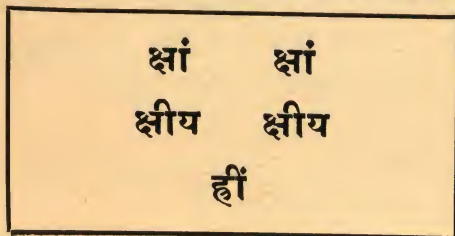 क्षां क्षां
क्षीय क्षीय
ह्रीं